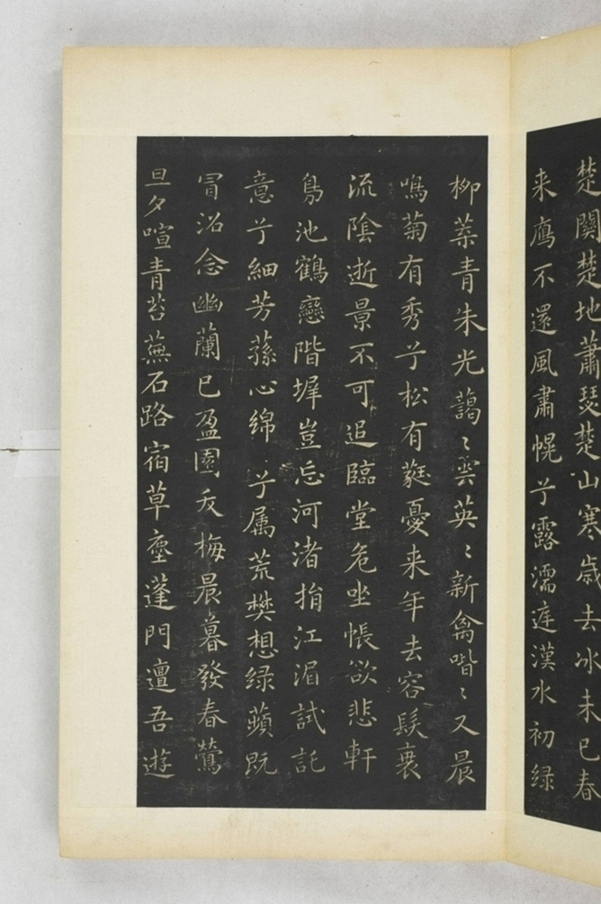 楚關楚地蕭瑟楚山寒歲去冰未已春
来鴈不還風肅幌兮露濡庭漢水初緑
柳葉青朱光藹〻雲英〻新禽喈〻又晨
鳴菊有秀兮松有蕤憂来年去容髮衰
流陰逝景不可追臨堂危坐悵欲悲軒
鳥池鶴戀階墀豈忘河渚捐江湄試託
意兮細芳蓀心綿兮属荒樊想緑蘋既
冒沼念幽蘭已盈園夭梅晨暮發春鶯
旦夕喧青苔蕪石路宿草塵蓬門邅吾遊